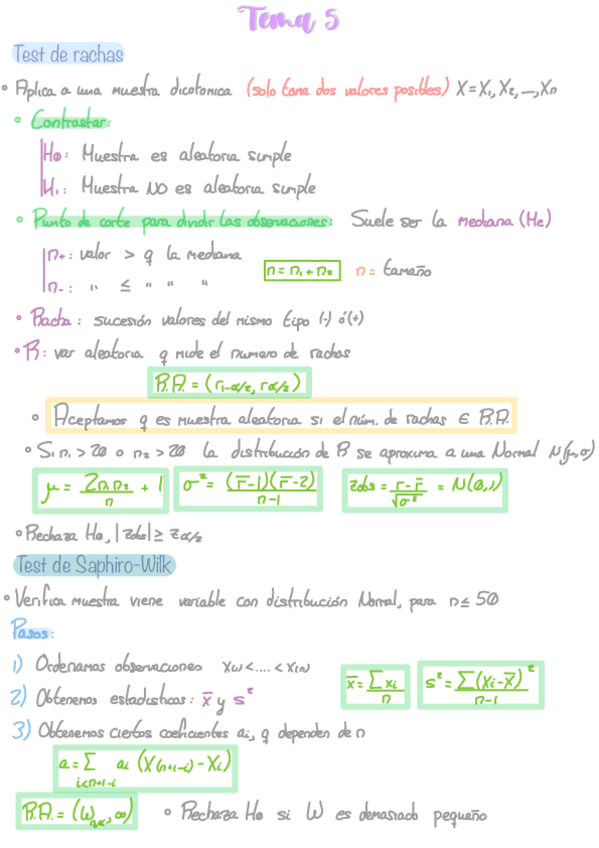 Tema 5
Test de rachas
• Aplica a una muestra dicotomica (solo toma dos valores posibles) X = X₁, X₂, ..., Xn
• Contrastar:
H₀: Muestra es aleatoria simple
H₁: Muestra NO es aleatoria simple
• Punto de corte para dividir las observaciones: Suele ser la mediana (Me)
n₊: valor > q la mediana
n = n₁ + n₂ n = tamaño
n₋: " ≤ " " "
• Racha: sucesión valores del mismo tipo (-) ó (+)
• R: var aleatoria q mide el numero de rachas
R.A. = (r₁₋α/₂, rα/₂)
• Aceptamos q es muestra aleatoria si el núm. de rachas ∈ R.A.
• Si n₁ > 20 o n₂ > 20 la distribución de R se aproxima a una Normal N(μ,σ)
μ = 2n₁n₂/n + 1 σ² = (r̄-1)(r̄-2)/n-1 Zobs = r-r̄/√σ² = N(0,1)
• Rechaza H₀, |Zobs| ≥ Zα/₂
Test de Saphiro-Wilk
• Verifica muestra viene variable con distribución Normal, para n ≤ 50
Pasos:
1) Ordenamos observaciones X₍₁₎ < .... < X₍n₎
2) Obtenemos estadísticas: x̄ y s² x̄ = ∑xi/n s² = ∑(xi-x̄)²/n-1
3) Obtenemos ciertos coeficientes ai, q dependen de n
a = ∑ ai (X(n+1-i) - Xi)
i<n+1-i
R.A. = (Wn,α, ∞) • Rechaza H₀ si W es demasiado pequeño